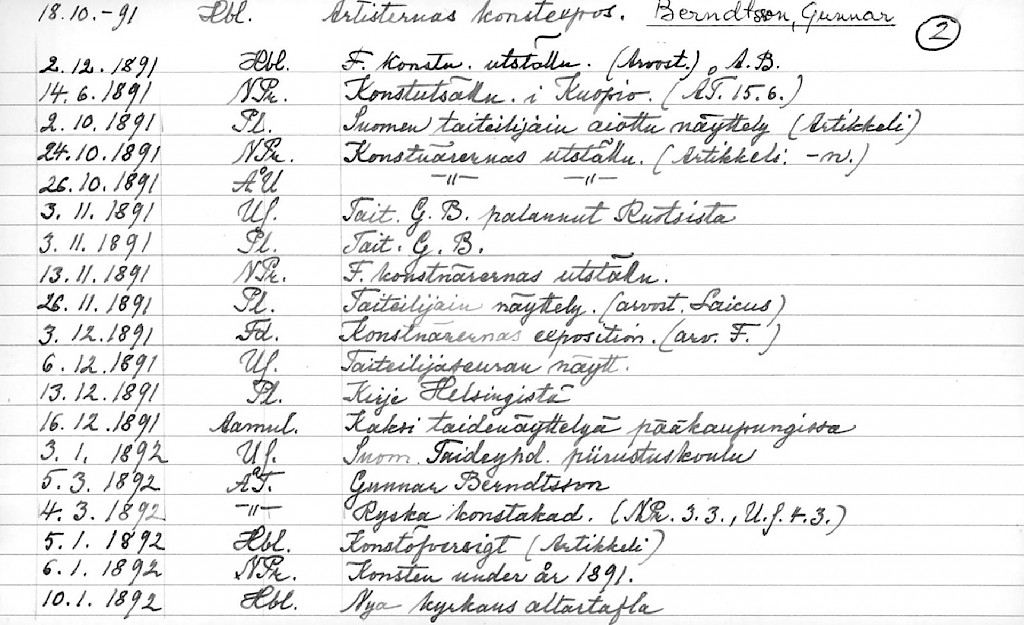 18.10.-91 Hbl. Artisternas konstexpos. Berndtsson, Gunnar
2
2.12.1891 Hbl. F. konstn. utställn. (Arvost.) A.B.
14.6.1891 NPr. Konstutställn. i Kuopio. (ÅT. 15.6.)
2.10.1891 Pl. Suomen taiteilijain aiottu näyttely (Artikkeli)
24.10.1891 NPr. Konstnärernas utställn. (Artikkeli: -n.)
26.10.1891 ÅU -"- -"-
3.11.1891 Us. Tait. G. B. palannut Ruotsista
3.11.1891 Pl. Tait. G. B.
13.11.1891 NPr. F. konstnärernas utställn.
26.11.1891 Pl. Taiteilijain näyttely. (arvost. Laicus)
3.12.1891 Fd. Konstnärernas exposition. (arv. F.)
6.12.1891 Us. Taiteilijaseuran näytt.
13.12.1891 Pl. Kirje Helsingistä
16.12.1891 Aamul. Kaksi taidenäyttelyä pääkaupungissa
3.1.1892 Us. Suom. Taideyhd. piirustuskoulu
5.3.1892 ÅT. Gunnar Berndtsson
4.3.1892 -"- Ryska konstakad. (NPr. 3.3., U.s. 4.3.)
5.1.1892 Hbl. Konstöfversigt (Artikkeli)
6.1.1892 NPr. Konsten under år 1891.
10.1.1892 Hbl. Nya kyrkans altartafla